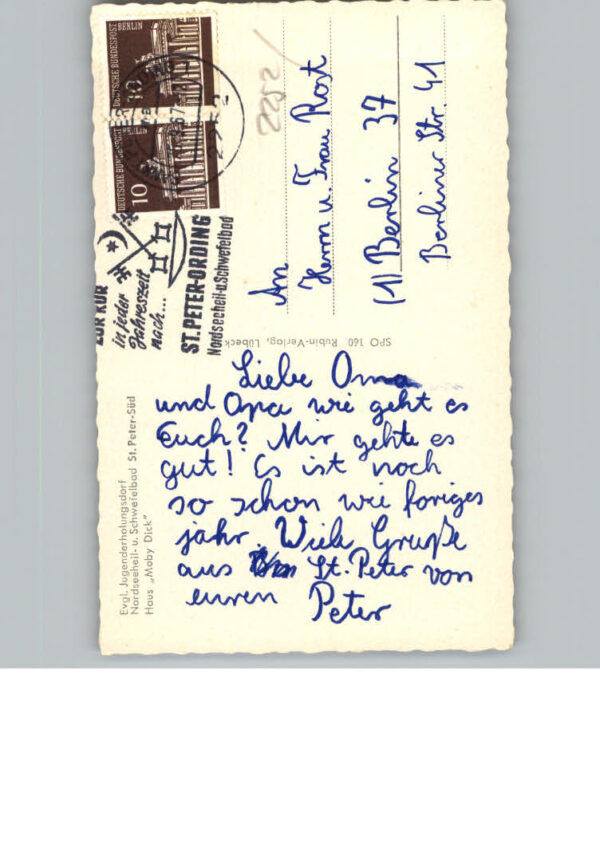 DEUTSCHE BUNDESPOST
BERLIN
10
DEUTSCHE BUNDESPOST
BERLIN
10
ZUR KUR
in jeder
Jahreszeit
nach...
ST. PETER-ORDING
Nordseeheil-u.Schwefelbad
2252
An
Herrn u. Frau Rost
(1) Berlin 37
Berliner Str. 41
SPO 160 Rubin-Verlag, Lübeck
Evgl. Jugenderholungsdorf
Nordseeheil- u. Schwefelbad St. Peter-Süd
Haus „Moby Dick"
Liebe Oma
und Opa wie geht es
Euch? Mir gehte es
gut! Es ist noch
so schon wie foriges
jahr. Viele Gruße
aus St. Peter von
euren Peter